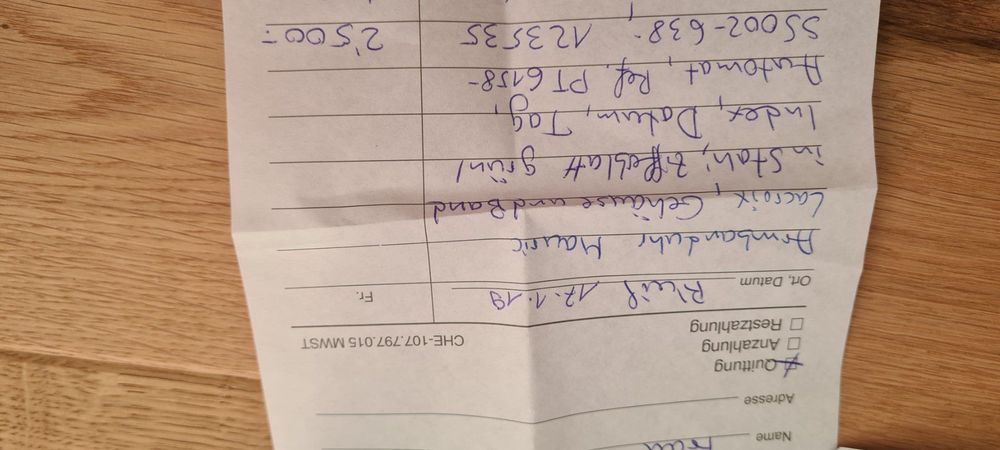 Name Frau
Adresse
Quittung
Anzahlung CHE-107.797.015 MWST
Restzahlung
Ort, Datum 17.1.19 Fr.
Armbanduhr Mauric
Lacroix, Gehäuse und Band
in Stahl, Zifferblatt grün/
Index, Datum, Tag,
Automat, Ref. PT6158-
SS002-638; 123535 2'500.-